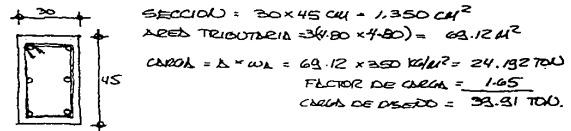 30
45
SECCION = 30×45 CM = 1,350 CM²
AREA TRIBUTARIA =3(4.80 ×4.80) = 69.12 M²
CARGA = A × WA = 69.12 ×350 KG/M² = 24.192 TON
FACTOR DE CARGA = 1.65
CARGA DE DISEÑO = 39.91 TON.